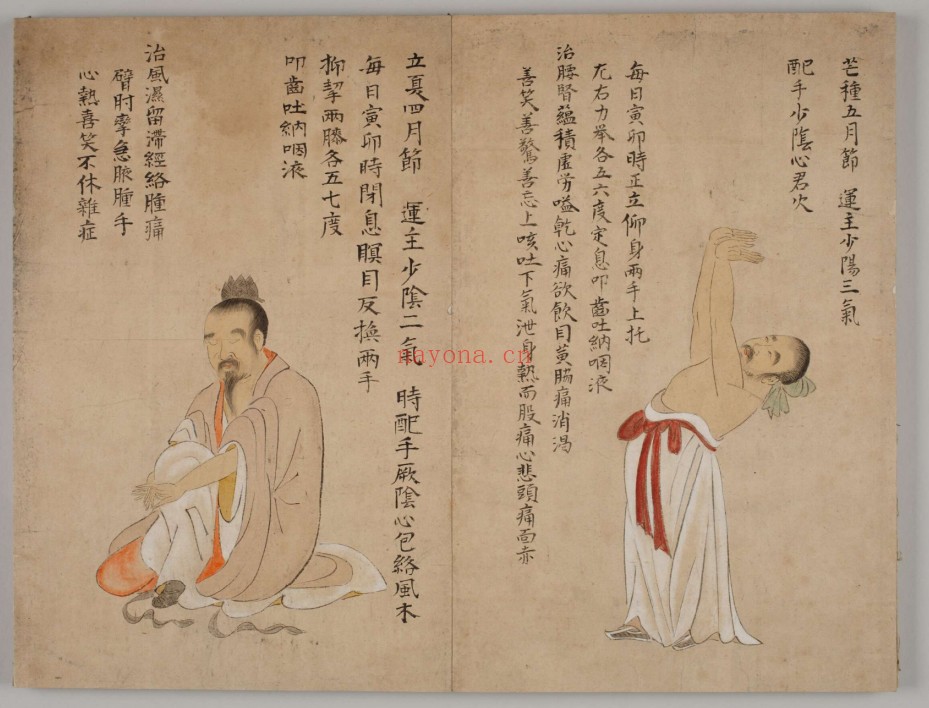 芒種五月節　運主少陽三氣
配手少陰心君火
每日寅卯時正立仰身兩手上托
左右力舉各五六度定息叩齒吐納咽液
治腰腎蘊積虛勞嗌乾心痛欲飲目黃脇痛消渴
善笑善驚善忘上咳吐下氣泄身熱而股痛心悲頭痛面赤
立夏四月節　運主少陰二氣　時配手厥陰心包絡風木
每日寅卯時閉息瞑目反換兩手
抑掣兩膝各五七度
叩齒吐納咽液
治風濕留滯經絡腫痛
臂肘攣急腋腫手
心熱喜笑不休雜症
nayona.cn